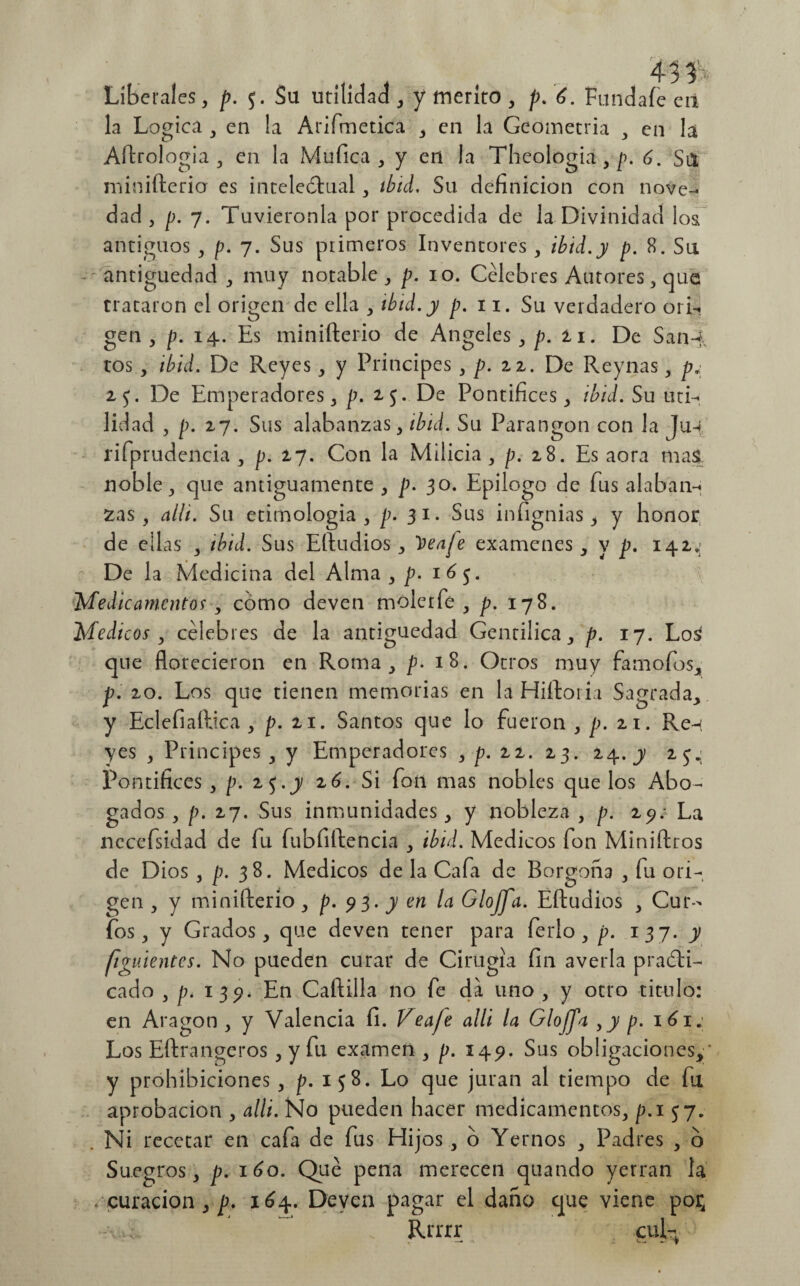 433
Liberales, p. 5. Su utilidad, y merito, p. 6. Fundase en
la Logica, en la Arismetica, en la Geometria, en la
Astrologia, en la Musica, y en la Theologia, p. 6. Su
ministerio es intelectual, ibid. Su definicion con nove-
dad, p. 7. Tuvieronla por procedida de la Divinidad los
antiguos, p. 7. Sus primeros Inventores, ibid. y p. 8. Su
antiguedad, muy notable, p. 10. Cèlebres Autores, que
trataron el origen de ella, ibid. y p. 11. Su verdadero ori-
gen, p. 14. Es ministerio de Angeles, p. 21. De San-
tos, ibid. De Reyes, y Principes, p. 22. De Reynas, p.
25. De Emperadores, p. 25. De Pontifices, ibid. Su uti-
lidad, p. 27. Sus alabanzas, ibid. Su Parangon con la Ju-
risprudencia, p. 27. Con la Milicia, p. 28. Es aora mas
noble, que antiguamente, p. 30. Epilogo de sus alaban-
zas, alli. Su etimologia, p. 31. Sus insignias, y honor
de ellas, ibid. Sus Estudios, Vease examenes, y p. 142.
De la Medicina del Alma, p. 165.
Medicamentos, còmo deven molerse, p. 178.
Medicos, cèlebres de la antiguedad Gentilica, p. 17. Los
que florecieron en Roma, p. 18. Otros muy famosos,
p. 20. Los que tienen memorias en la Historia Sagrada,
y Eclesiastica, p. 21. Santos que lo fueron, p. 21. Re-
yes, Principes, y Emperadores, p. 22. 23. 24. y 25.
Pontifices, p. 25. y 26. Si son mas nobles que los Abo-
gados, p. 27. Sus inmunidades, y nobleza, p. 29. La
necessidad de su subsistencia, ibid. Medicos son Ministros
de Dios, p. 38. Medicos de la Casa de Borgoña, su ori-
gen, y ministerio, p. 93. y en la Glossa. Estudios, Cur-
sos, y Grados, que deven tener para serlo, p. 137. y
siguientes. No pueden curar de Cirugìa sin averla practi-
cado, p. 139. En Castilla no se dà uno, y otro titulo:
en Aragon, y Valencia si. Vease alli la Glossa, y p. 161.
Los Estrangeros, y su examen, p. 149. Sus obligaciones,
y prohibiciones, p. 158. Lo que juran al tiempo de su
aprobacion, alli. No pueden hacer medicamentos, p. 157.
Ni recetar en casa de sus Hijos, ò Yernos, Padres, ò
Suegros, p. 160. Què pena merecen quando yerran la
curacion, p. 164. Deven pagar el daño que viene por
Rrrrr cul-